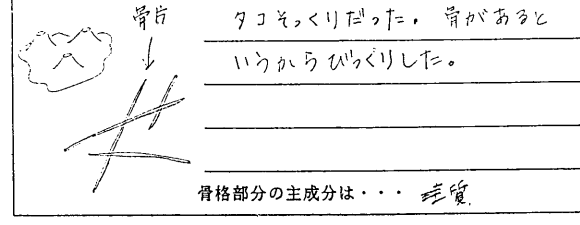 骨片
タコそっくりだった。骨があると
いうからびっくりした。
骨格部分の主成分は・・・ 珪質